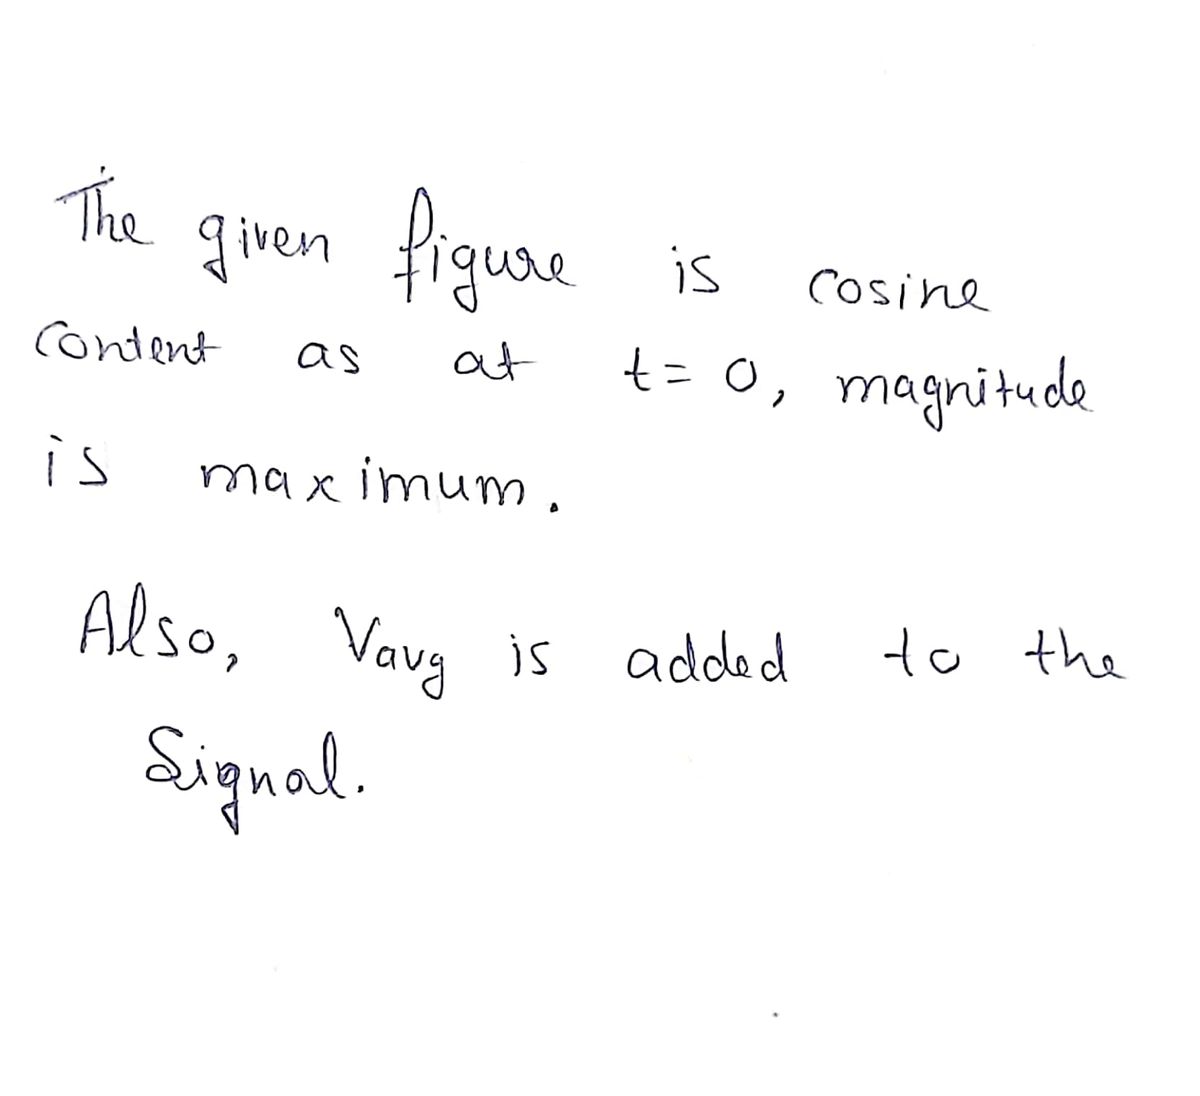 The given figure is cosine
content as at t = 0, magnitude
is maximum.
Also, Vavg is added to the
Signal.